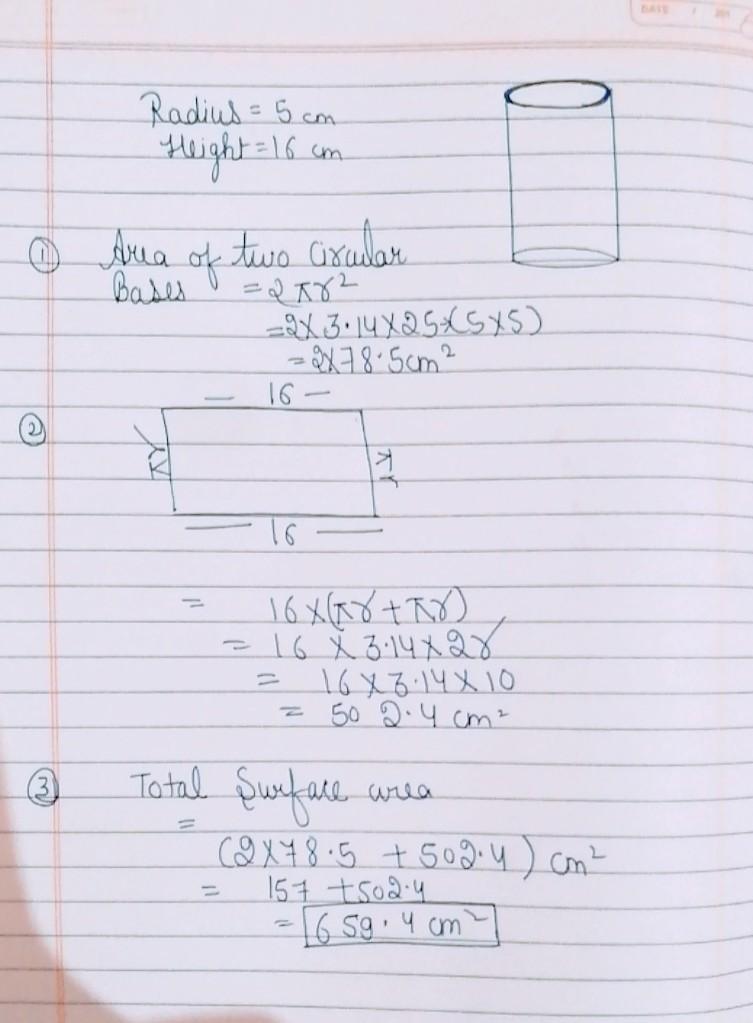 DATE
Radius = 5 cm
Height = 16 cm
① Area of two Circular
Bases = 2πr²
= 2 × 3.14 × 25 × (5 × 5)
= 2 × 78.5 cm²
— 16 —
②
πr
πr
— 16 —
= 16 × (πr + πr)
= 16 × 3.14 × 2r
= 16 × 3.14 × 10
= 502.4 cm²
③ Total Surface area
=
(2 × 78.5 + 502.4) cm²
= 157 + 502.4
= 659.4 cm²